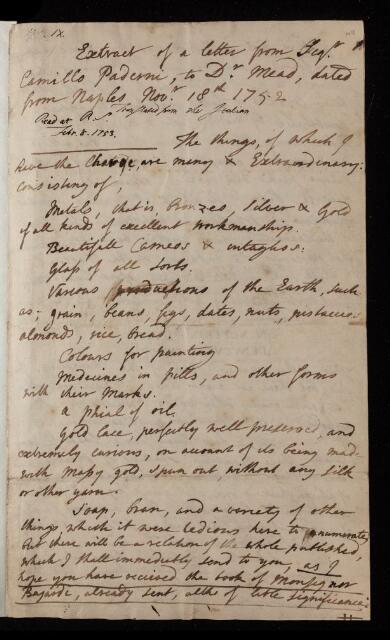 IX.
Extract of a letter from Sigr.
Camillo Paderni, to Dr. Mead, dated
from Naples Novr. 18th 1752
Translated from the Italian
Read at R.S.
Febr. 8. 1753.
The things, of which I
have the Charge, are many & Extraordinary:
consisting of,
Metals, that is, Bronzes, Silver & Gold
of all kinds of excellent workmanship.
Beautifull Cameos & intaglios:
Glass of all sorts.
Various productions of the Earth, such
as; grain, beans, figs, dates, nuts, pistaccios
almonds, rice, bread.
Colours for painting
Medicines in pills, and other forms
with their Marks.
a phial of oil.
Gold lace, perfectly well preserved, and
extremely curious, on account of its being made
with Massy gold, spun out, without any silk
or other yarn.
Soap, bran, and a variety of other
things, which it were tedious here to enumerate,
but there will be a relation of the whole published,
which I shall immediately send to you, as I
hope you have received the book of Monsignor
Bajardi, already sent, altho of little significance: